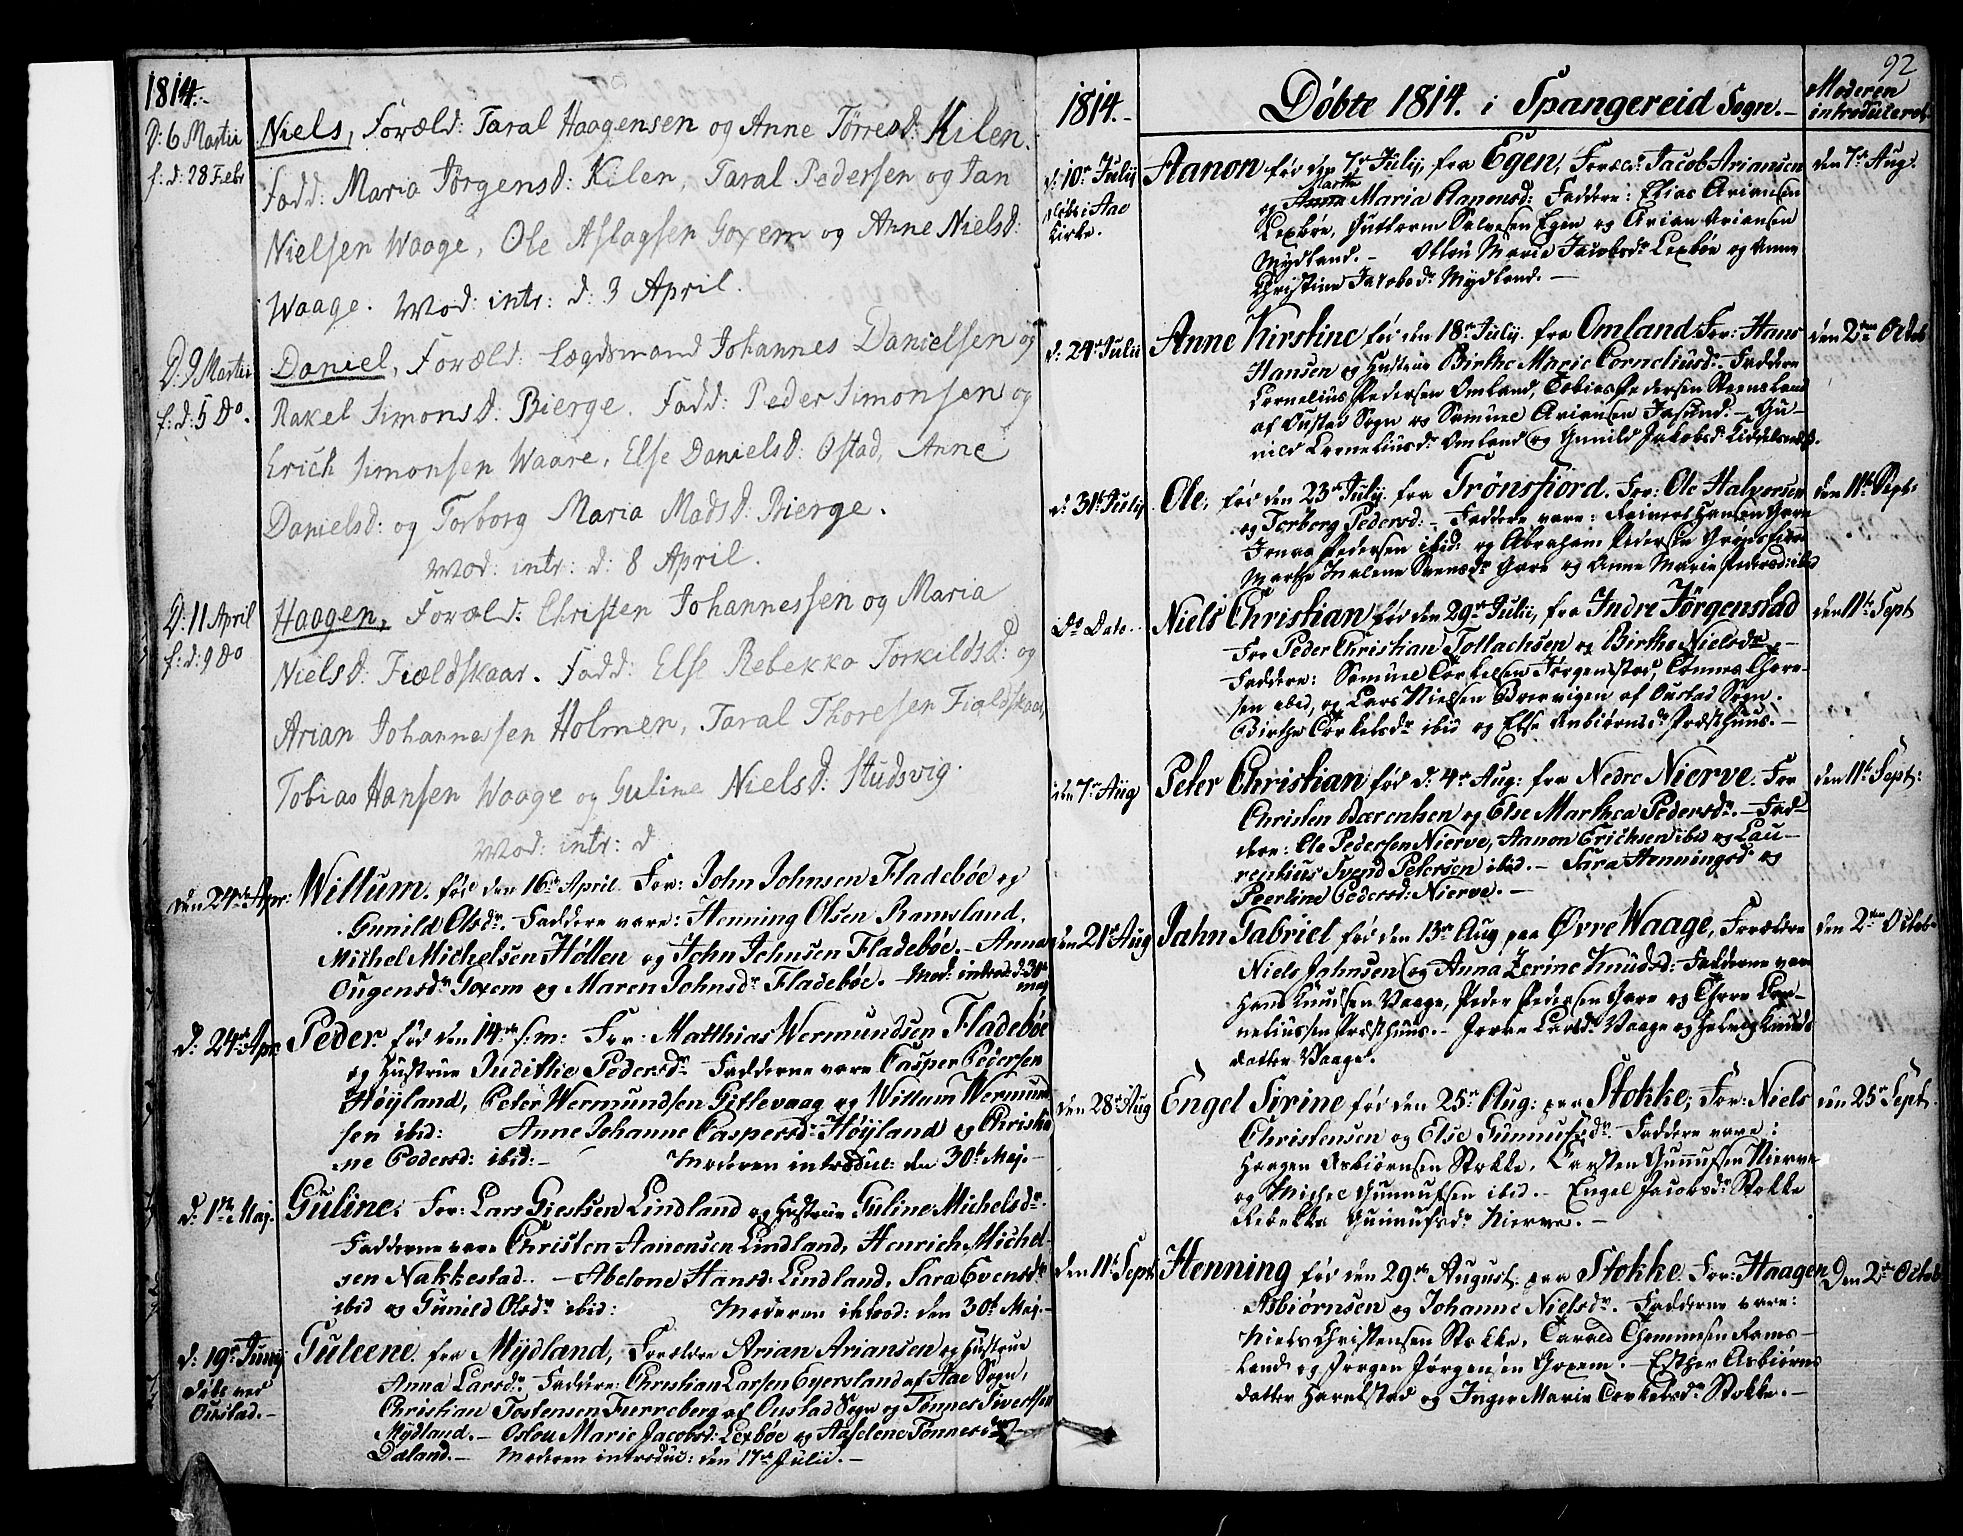 1814.
D: 6 Martii Niels, Foræld: Taral Haagensen og Anne Tørresd: Kilen.
f: d: 28 Febr Fadd: Maria Jørgensd: Kilen, Taral Pedersen og Jan
Nielsen Waage, Ole Aslagsen Goxem og Anne Nielsd:
Waage. Mod: intr: d: 3 April.
D. 9 Martii Daniel, Foræld: Lægdsmand Johannes Danielsen og
f: d: 5 Do. Rakel Simonsd: Bierge. Fadd: Peder Simonsen og
Erich Simonsen Waare, Else Danielsd: Ostad, Anne
Danielsd: og Torborg Maria Madsd: Bierge.
Mod: intr: d: 8 April.
D: 11 April Haagen, Foræld: Christen Johannessen og Maria
f: d: 9 Do Nielsd: Fieldskaar. Fadd: Else Rebekka Torkildsd: og
Arian Johannessen Holmen, Taral Thoresen Fieldskaar,
Tobias Hansen Waage og Guline Nielsd: Studsvig.
Mod: intr: d
den 24de Apr: Willum. fød den 16de April. For: John Johnsen Fladebøe og
Gunild Olsdr. Faddere vare: Henning Olsen Ramsland,
Michel Michelsen Hollen og John Johnsen Fladebøe. - Anna
Ougensdr Goxem og Maren Johnsdr Fladebøe. - Mod: introd: d: 30te
maj
d: 24de Apr: Peder. fød den 14de s: m: For: Matthias Wermundsen Fladebøe
og Hustrue Judithe Pedersdr Fadderne vare Casper Pedersen
Høyland, Peter Wermundsen Gitlevaag og Willum Wermund
sen ibid: Anne Johanne Caspersd: Høyland og Christi
ne Pedersd: ibid: - Moderen introduc: den 30te Maj. -
d: 1ste Maj. Guline. For: Lars Giertsen Lindland og Hustrue Guline Michelsdr.
Fadderne vare Christen Aanensen Lindland, Henrich Michel-
sen Nakkestad. - Abelone Hansd: Lindland, Sara Evensdr
ibid og Gunild Olsdr ibid: Moderen introd: den 30te Maj. -
d: 19de Junij Guleene. fra Mydland, Forældre Arian Ariansen og Hustrue
Døbt ved Anna Larsdr. Faddere: Christian Larsen Eyersland af Aae Sogn,
Oustad. - Christian Tostensen Furreberg af Oustad Sogn og Tønnes Sivertsen
Mydland. - Oslou Marie Jacobsd: Lexbøe og Aaselene Tønnesdr
Daland. - Moderen introduc: den 17de Julii. -
92
1814. - Døbte 1814. i Spangereid Sogn. - Moderen
introduceret
d: 10de Julij Aanon fød den 7de Julij, fra Egen, Foræld: Jacob Ariansen den 7de Aug.
døbt i Aae og Marthe Maria Aanensd: Faddere: Elias Ariansen
Kirke. Lexbøe, Guttorm Salvesen Egen og Arian Ariansen
Mydland. - Oslou Marie Jacobsdr Lexbøe og Anne
Christine Jacobsdr Mydland. -
d: 24de Julii Anne Kirstine fød den 18de Julij. fra Omland. For: Hans den 2den Octob
Hansen og Hustrue Birthe Marie Corneliusd: - Faddere
Cornelius Pedersen Omland, Tobias Pedersen Steensland
af Oustad Sogn og Samuel Ariansen Jaasund. - Gu-
nild Corneliusdr Omland og Gunild Jakobsdr
d: 31te Julij Ole, fød den 23de Julij fra Grønsfiord. For: Ole Halvorsen den 11te Sept:
og Torborg Pedersd: - Faddere vare: Reinert Hansen Gare
Jonas Pedersen ibid: og Abraham Pedersen Grønsfiord
Marthe Malene Svensdr Gare og Anne Marie Pedersd: ibid
Do Dato Niels Christian fød den 29de Julii, fra Indre Jørgenstad den 11te Sept
For Peder Christian Tollachsen og Birthe Nielsdr -
Faddere: Samuel Torkelsen Jørgenstad, Tønnes Thore-
sen ibid, og Lars Nielsen Bervigen af Oustad Sogn.
Birthe Torkelsdr ibid og Else Asbiørnsdr Præsthuus. -
den 7de Aug Peter Christian fød d: 4de Aug: fra Nedre Nierve. For den 11te Sept:
Christen Bærentsen og Else Marthea Pedersdr. - Fad-
dere: Ole Pedersen Nierve, Aanon Erichsen ibid og Lau-
rentius Svend Petersen ibid. - Sara Henningsdr og
Peerline Pedersd: Nierve. -
den 21de Aug Jahn Gabriel fød den 13de Aug paa Øvre Waage, Forældre den 2den Octob.
Niels Jahnsen og Anna Zerine Knudsd: Fadderne vare
Hans Knudsen Vaage, Peder Pedersen Gare og Thore Cor-
neliussen Præsthuus. - Larsdr Vaage og Helvig Knuds
datter Vaage.
den 28de Aug Engel Sirine fød den 25de Aug: paa Stokke, For: Niels den 25de Sept.
Christensen og Else Gunnufsdr. Faddere vare:
Haagen Asbiørnsen Stokke, Carsten Gunnufsen Nierve
og Michel Gunnufsen ibid. - Engel Jacobsdr Stokke
Rebekka Gunnufsdr Nierve. -
den 11te Sept: Henning fød den 29de August, paa Stokke. For: Haagen Den 2den Octob
Asbiørnsen og Johanne Nielsdr. Fadderne vare:
Niels Christensen Stokke, Tarald Thommesen Rams-
land og Jørgen Jørgensen Goxem. - Esther Asbiørns
datter Harelstad og Inger Marie Torkelsdr Stokke. -